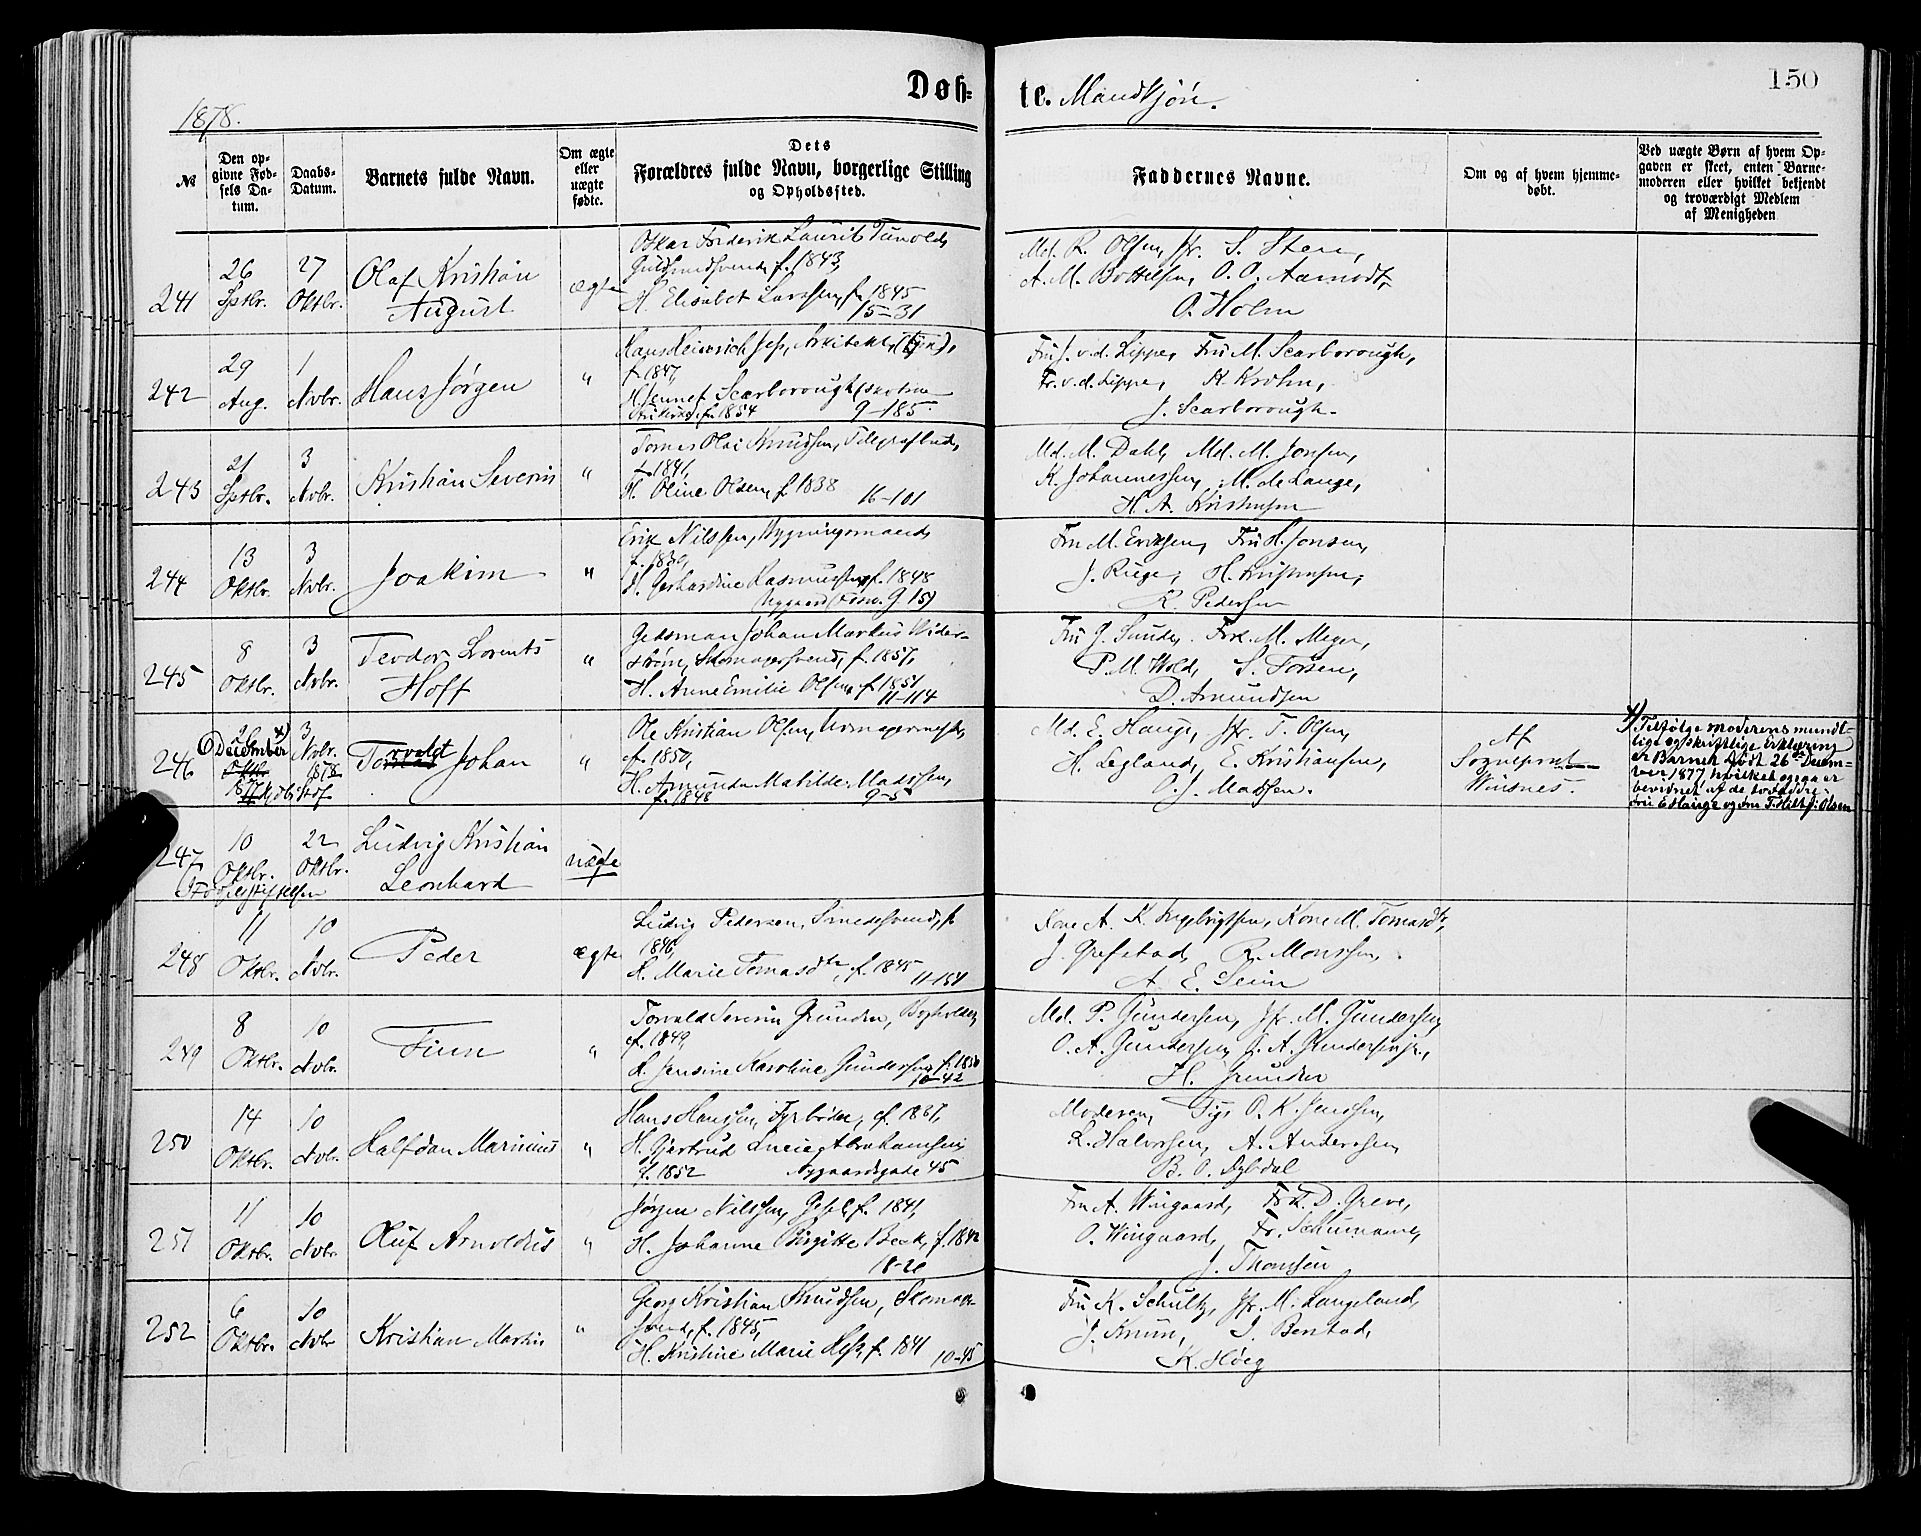 1878.
Døb-
te. Mandkjøn.
150
№
Den op-
givne Fød-
sels Da-
tum.
Daabs-
Datum.
Barnets fulde Navn.
Om ægte
eller
uægte
fødte.
Dets
Forældres fulde Navn, borgerlige Stilling
og Opholdssted.
Faddernes Navne.
Om og af hvem hjemme-
døbt.
Ved uægte Børn af hvem Op-
gaven er skeet, enten Barne-
moderen eller hvilket bekjendt
og troværdigt Medlem
af Menigheden
241
26
Sptbr.
27
Oktbr.
Olaf Kristian
August
ægte
Oskar Frederik Laurits Tunold,
Guldsmedsvend, f. 1843,
H. Elisabet Larssen, f. 1845
15-31
Md. R. Olsen, Jfr. S. Steen,
A. M. Bottelsen, O. O. Aamodt,
O. Holm
242
29
Aug.
1
Nvbr.
Hans Jørgen
"
Hans Heinrich Jess, Arkitekt,
f. 1847,
H. Jennet Scarborough
f. 1854 9-185.
Fru J. v. d. Lippe, Fru M. Scarborough,
Fr. v. d. Lippe, K. Krohn,
J. Scarborough.
243
21
Sptbr.
3
Nvbr.
Kristian Severin
"
Tomas Olai Knudsen, Telegrafbud,
f. 1841,
H. Oline Olsen, f. 1838 16-101
Md. M. Dahl, Md. M. Jonsen,
K. Johannessen, M. de Lange,
H. A. Kristensen
244
13
Oktbr.
3
Nvbr.
Joakim
"
Erik Nilssen, Bygningsmand,
H. Gerhardine Rasmussen, f. 1848
Fru M. Eriksen, Fru H. Jonsen,
J. Riege, H. Kristensen,
R. Pedersen
245
8
Oktbr.
3
Nvbr.
Teodor Lorents
Hoff
"
Johan Markus Wider-
strøm, Skomagersvend, f. 1857,
H. Anne Emilie Olsen, f. 1851
11-114
Fru J. Sunde, Frk. M. Meyer,
P. M. Wold, S. Torsen,
D. Amundsen
246
26
December x)
Oktbr
1877
3
Nvbr.
1878
Torvald Johan
"
Ole Kristian Olsen, Urmagermester,
f. 1850,
H. Amunda Matilde Madssen,
f. 1848 9-5
Md. E. Hauge, Jfr. T. Olsen,
H. Legland, E. Kristiansen,
O. J. Madssen.
Af
Sogneprest
Wisnes.
x) Tilfølge Moderens mundt-
lige og skriftlige Erklæring
er Barnet født 26de Decem-
ber 1877, hvilket ogsaa er
bevidnet af de to Faddre:
Fru E. Hauge og Fru T. Olsen
247
10
Oktbr.
Fødselsstiftelsen
22
Oktbr.
Ludvig Kristian
Leonhard
uægte
248
11
Oktbr.
10
Nvbr.
Peder
ægte
Ludvig Pedersen, Smedesvend, f.
1846,
K. Marie Tomasdtr, f. 1845 11-151
Kone A. K. Ingebrigtsen, Kone M. Tomasdtr,
J. Grefstad, R. Monssen,
A. E. Seim
249
8
Oktbr.
10
Nvbr.
Finn
"
Torvald Severin Grunder, Bogholder,
f. 1849,
H. Jensine Karoline Gundersen, f. 1850
10-42
Md. P. Gundersen, Jfr. M. Gundersen,
O. A. Gundersen, J. A. Gundersen jr.,
H. Grunder
250
14
Oktbr.
10
Nvbr.
Halfdan Marinius
"
Hans Hanssen, Fyrbøder, f. 1837,
H. Gjertrud Lucie Abrahamsen,
f. 1852 Nygaardsgade 45
Moderen, Pige O. K. Jenssen,
L. Halvorsen, A. Anderssen,
B. O. Dybdal
251
11
Oktbr.
10
Nvbr.
Oluf Arnoldus
"
Jørgen Nilssen, f. 1841,
H. Johanne Birgitte Beck, f. 1842
18-20
Fru A. Wingaard, Frk. D. Greve,
O. Wingaard, Fr. Schumann,
J. Thomsen
252
6
Oktbr.
10
Nvbr
Kristian Martin
"
Georg Kristian Knudsen, Skomager-
svend, f. 1845,
H. Kristine Marie Hess, f. 1841 10-45
Fru K. Schultz, Jfr. M. Langeland,
J. Knum, J. Benstad,
K. Høeg